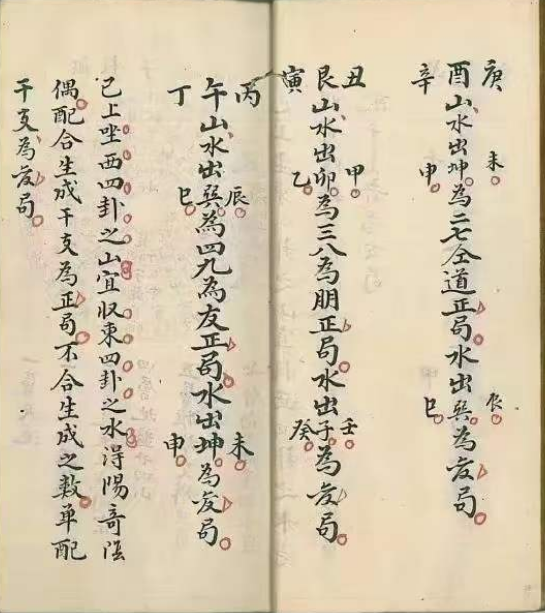 庚酉辛山水出未坤申為二七仝道正局水出辰巽巳為局
丑艮寅山水出甲卯乙為三八為朋正局水出壬子癸為局
丙午丁山水出辰巽巳為四九為友正局水出未坤申為局
已上坐西四卦之山宜収東四卦之水淂陽奇陰
偶配合生成干支為正局不合生成之数单配
干支為局